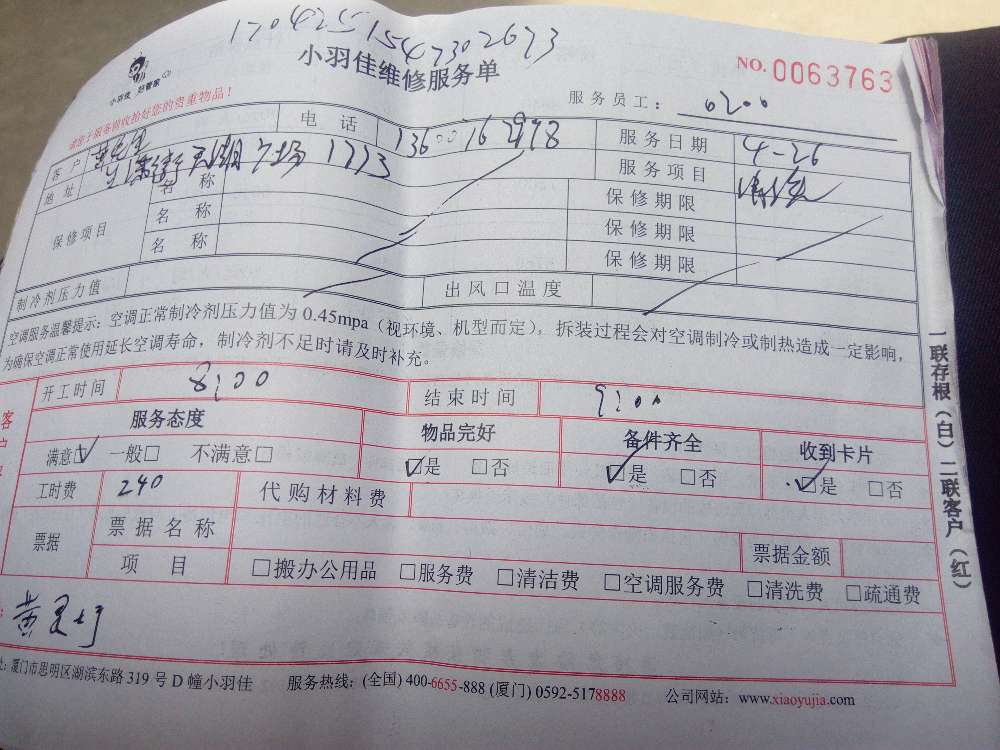 1704251547302673
小羽佳维修服务单
NO.0063763
小羽佳 好管家
请您于服务前收拾好您的贵重物品！
服务员工： 0200
客户 黄先生 电话 13600162998 服务日期 4-26
地址 广场 1773 服务项目
保修项目 名称 保修期限
名称 保修期限
名称 保修期限
制冷剂压力值 出风口温度
空调服务温馨提示：空调正常制冷剂压力值为 0.45mpa（视环境、机型而定），拆装过程会对空调制冷或制热造成一定影响，
为确保空调正常使用延长空调寿命，制冷剂不足时请及时补充。
开工时间 8:00 结束时间 9:00
客户
服务态度 物品完好 备件齐全 收到卡片
满意☑ 一般□ 不满意□ ☑是 □否 ☑是 □否 ☑是 □否
工时费 240 代购材料费
票据 票据名称 票据金额
项目 □搬办公用品 □服务费 □清洁费 □空调服务费 □清洗费 □疏通费
黄
厦门市思明区湖滨东路 319 号 D 幢小羽佳 服务热线：(全国) 400-6655-888 (厦门) 0592-5178888 公司网站：www.xiaoyujia.com
一联存根（白）二联客户（红）